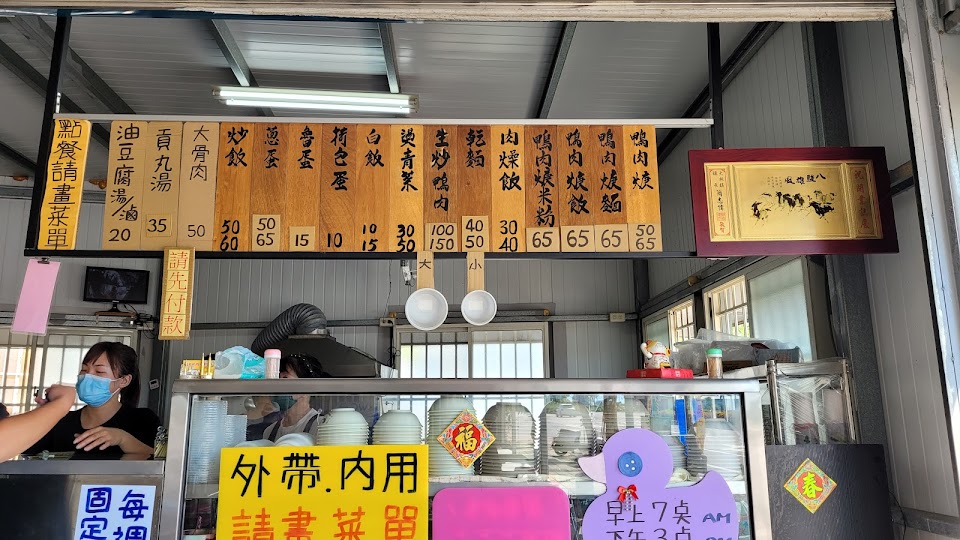 點餐請畫菜單
油豆腐湯/滷
20
貢丸湯
35
大骨肉
50
炒飯
50
60
蔥蛋
50
65
魯蛋
15
荷包蛋
10
白飯
10
15
燙青菜
30
50
生炒鴨肉
100
150
乾麵
40
50
肉燥飯
30
40
鴨肉焿米粉
65
鴨肉焿飯
65
鴨肉焿麵
65
鴨肉焿
50
65
請先付款
大
小
福
春
外帶.內用
請畫菜單
每週
固定
早上7点 AM
下午3点